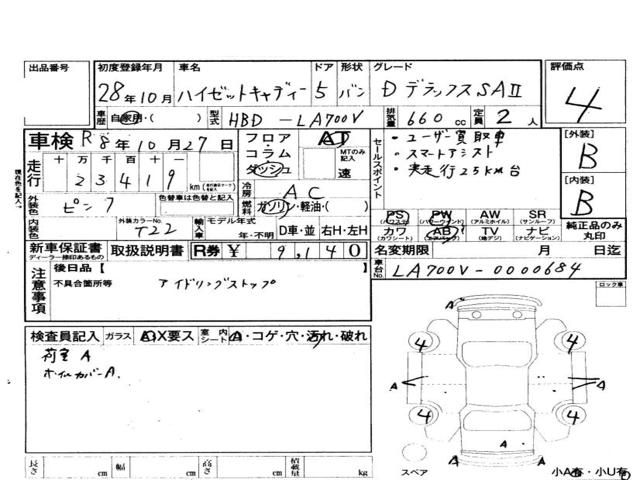 出品番号
初度登録年月 車名 ドア 形状 グレード 評価点
28年10月 ハイゼットキャディー 5 バン D デラックスSAⅡ 4
車歴 自家用・( ) 型式 HBD-LA700V 排気量 660 cc 定員 2 人
車検 R8年10月27日
フロア・コラム・ダッシュ AT MTのみ記入 速
走行 十 万 千 百 十 一
2 3 4 1 9 km
現在色を記入
外装色 ピンク 色替車は色替と記入
内装色 外装カラーNo. T22
冷房 AC
燃料 ガソリン・軽油・( )
輸入車 モデル年式 年・不明 D車・並 右H・左H
セールスポイント
・ユーザー買取車
・スマートアシスト
・実走行2.5KM台
[外装]
B
[内装]
B
PS (パワステ) PW (パワーウインド) AW (アルミホイル) SR (サンルーフ)
カワ (カワシート) AB (エアバッグ) TV (地デジ) ナビ (ナビゲーション)
純正品のみ丸印
新車保証書 ディーラー捺印あるもの 取扱説明書 R券 ¥ 9,140
名変期限 月 日迄
車台No. LA700V-0000684
注意事項 後日品【 】
不具合箇所等 アイドリングストップ
ロック車
検査員記入 ガラス A・X要ス 室内シート A・コゲ・穴・汚れ・破れ
荷室 A
ホイルカバーA.
4 4
A A
4 4
A
A A
スペア 小A有・小U有
長さ cm 幅 cm 高さ cm 積載量 kg